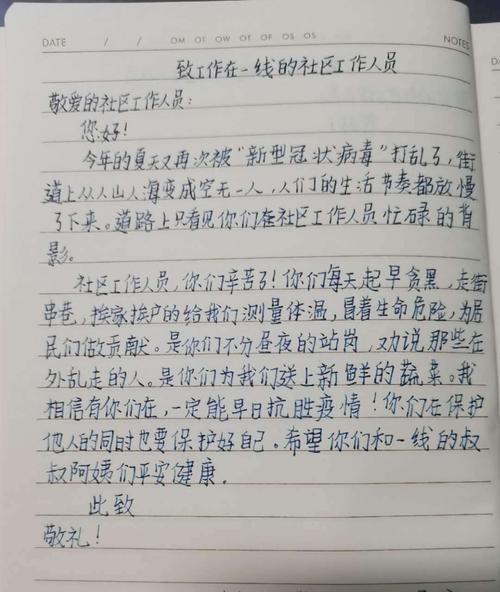 DATE / / OM OT OW OT OF OS OS NOTES
致工作在一线的社区工作人员
敬爱的社区工作人员:
您好!
今年的夏天又再次被“新型冠状病毒”打乱了,街
道上从人山人海变成空无一人,人们的生活节奏都放慢
了下来。道路上只看见你们在社区工作人员忙碌的背
影。
社区工作人员,你们辛苦了!你们每天起早贪黑,走街
串巷,挨家挨户的给我们测量体温,冒着生命危险,为居
民们做贡献。是你们不分昼夜的站岗,又劝说那些在
外乱走的人。是你们为我们送上新鲜的蔬菜。我
相信有你们在,一定能早日抗胜疫情!你们在保护
他人的同时也要保护好自己。希望你们和一线的叔
叔阿姨们平安健康.
此致
敬礼!